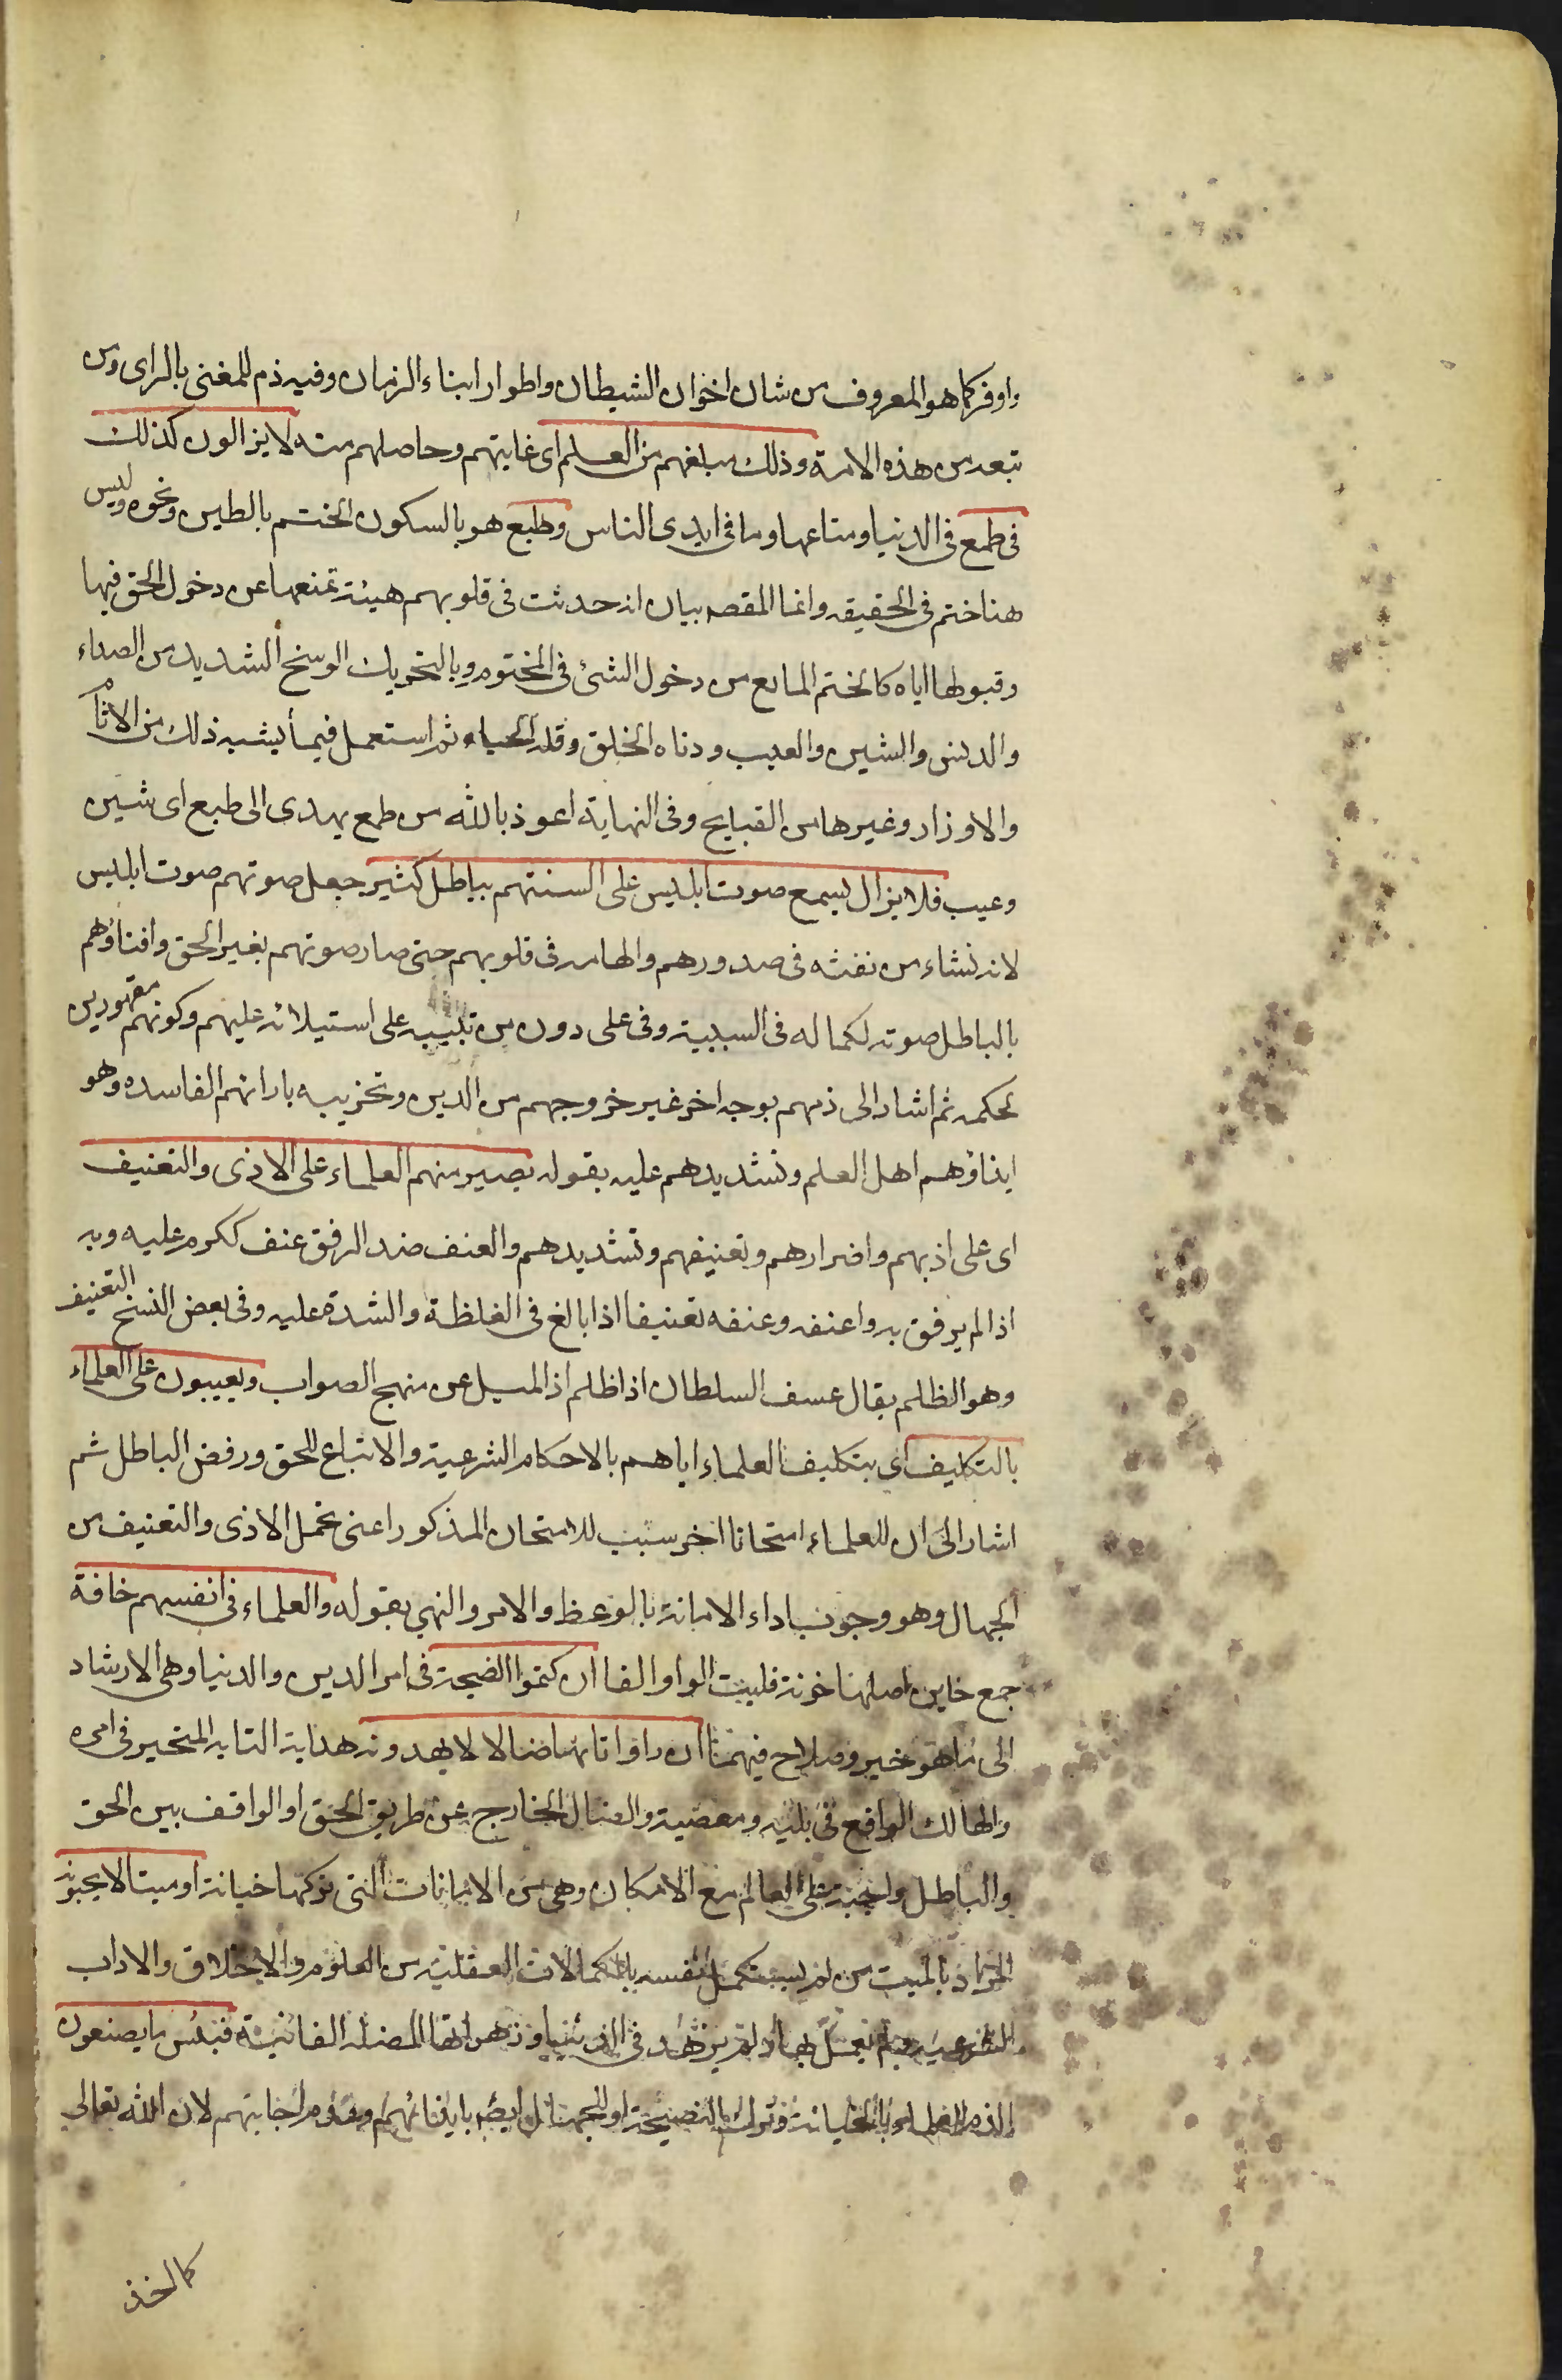 واوفر كما هو المعروف من شان اخوان الشيطان واطوار ابناء الزمان وفيه ذم للمغنى بالراى ومن
تبعه من هذه الامة وذلك مبلغهم من العلم اى غايتهم وحاصلهم منه لا يزالون كذلك
فى طمع فى الدنيا ومتاعها وما فى ايدى الناس وطبع هو بالسكون الختم بالطين ونحوه وليس
هنا ختم فى الحقيقه وانما المقصه بيان انه حدثت فى قلوبهم هيئة تمنعها عن دخول الحق فيها
وقبولها اياه كالختم المانع من دخول الشئ فى المختوم وبالتحريك الوسخ الشديد من الصداء
والدنس والشين والعيب ودناه الخلق وقلة الحياء ثم استعمل فيما يشبه ذلك من الاثام
والاوزار وغيرها من القبايح وفى النهاية اعوذ بالله من طمع يهدى الى طبع اى شين
وعيب فلا يزال يسمع صوت ابليس على السنتهم بباطل كثير جعل صوتهم صوت ابليس
لانه نشاء من نفثه فى صدورهم والهامه فى قلوبهم حتى صار صوتهم بغير الحق وافتاؤهم
بالباطل صوته لكماله فى السببية وفى على دون من تنبيه على استيلائه عليهم وكونهم مقهورين
لحكمه ثم اشار الى ذمهم بوجه اخر غير خروجهم من الدين وتخريبه بارائهم الفاسده وهو
ايذاؤهم اهل العلم وتشديدهم عليه بقوله يصير منهم العلماء على الاذى والتعنيف
اى على اذيهم واضرارهم وتعنيفهم وتشديدهم والعنف ضد الرفق عنف ككرم عليه وبه
اذا لم يرفق به واعنفه وعنفه تعنيفا اذا بالغ فى الغلظة والشدة عليه وفى بعض النسخ التعنيف
وهو الظلم يقال عسف السلطان اذا ظلم اذ الميل عن منهج الصواب ويعيبون على العلماء
بالتكليف اى بتكليف العلماء اياهم بالاحكام الشرعية والاتباع للحق ورفض الباطل ثم
اشار الى ان للعلماء امتحانا اخر سبب للامتحان المذكور اعنى تحمل الاذى والتعنيف من
الجهال وهو وجوب اداء الامانة بالوعظ والامر والنهي بقوله والعلماء فى انفسهم خافة
جمع خاين اصلها خونة قلبت الواو الفا ان كتموا النصيحة فى امر الدين والدنيا وهى الارشاد
الى ما هو خير وصلاح فيهما ان راوا تايها ضالا لا يهدونه هداية التايه المتحير فى امره
والهالك الواقع فى بليه ومعصية والضال الخارج عن طريق الحق او الواقف بين الحق
والباطل واجبة على العالم مع الامكان وهى من الامانات التى تركها خيانة او ميتا لا يحيونه
المراد بالميت من لم يستكمل نفسه بالكمالات العقلية من العلوم والاخلاق والاداب
الشرعيه ولم يعمل بها او لم يزهد فى الدنيا وزهراتها المضله الفانية فبئس ما يصنعون
الذم للعلماء بالخيانة وترك النصيحة او للجهال ايضا بايذائهم وعدم اجابتهم لان الله تعالى
كما اخذ